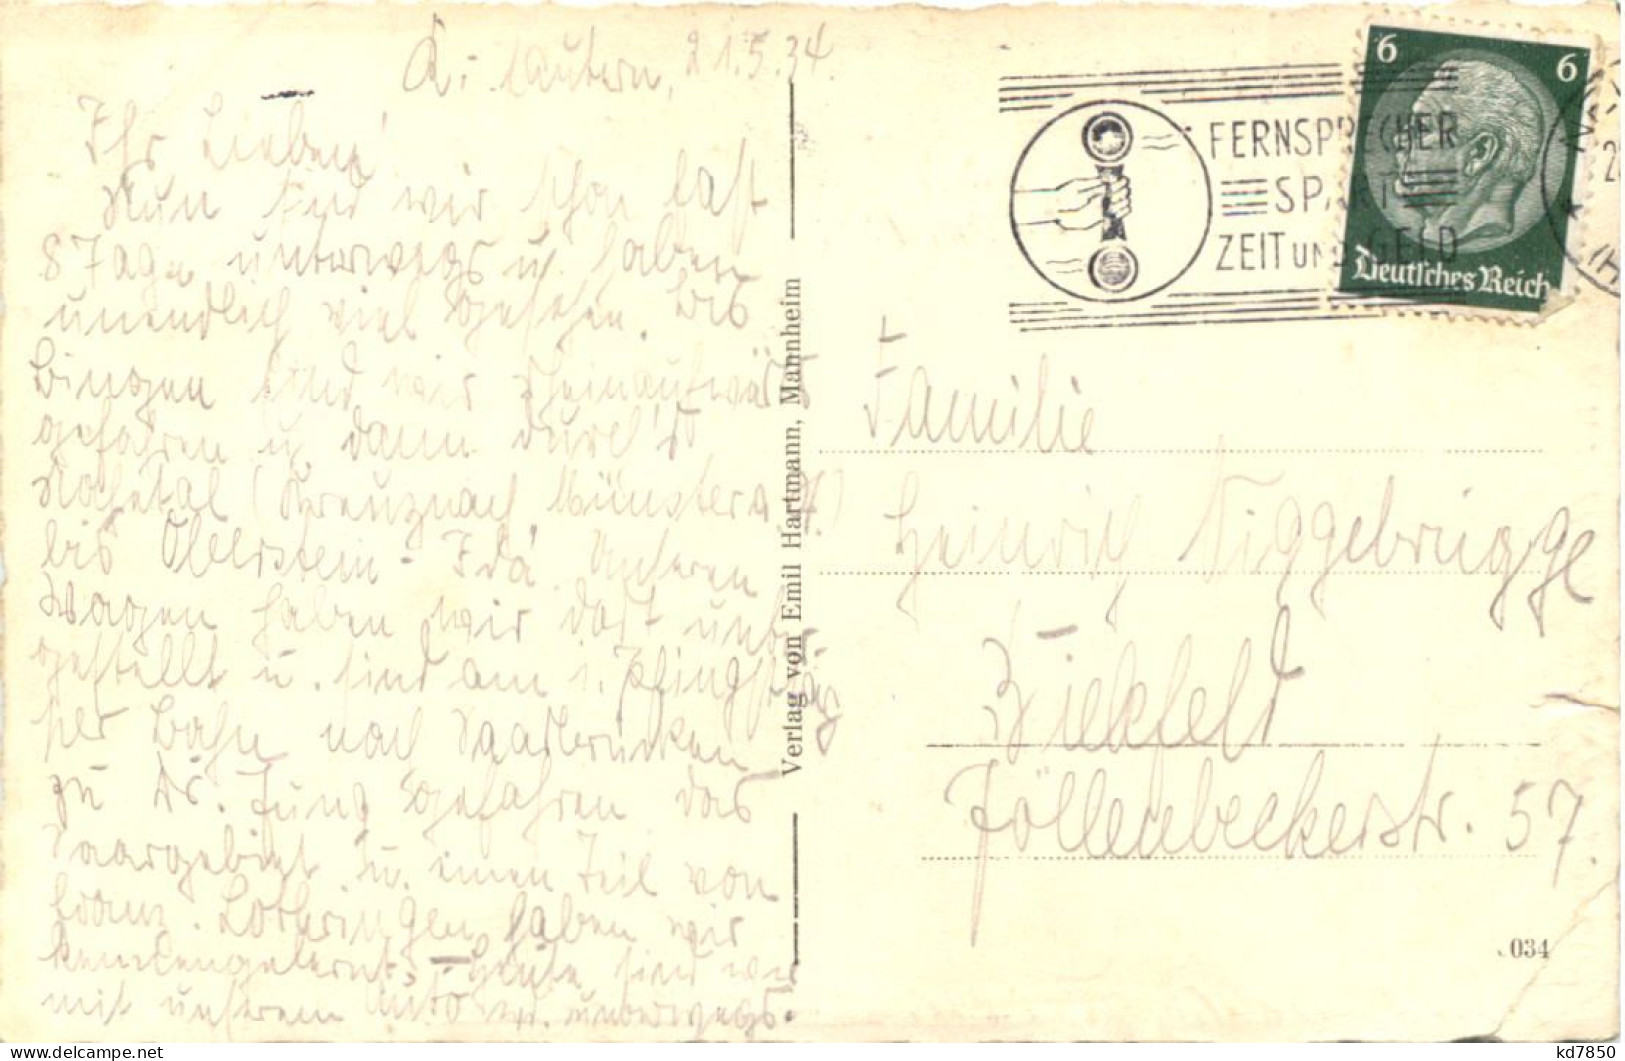 K.-lautern, 21.5.34.
Ihr Lieben!
Nun sind wir schon fast
8 Tage unterwegs u. haben
unendlich viel gesehen. Bis
Bingen sind wir rheinaufwärts
gefahren u. dann durch's
Nahetal (Kreuznach, Münster a. St.)
bis Oberstein-Idar. Unseren
Wagen haben wir dort unter-
gestellt u. sind am 1. Pfingsttag
per Bahn nach Saarbrücken
zu Dr. Jung gefahren das
Saargebiet u. einen Teil von
franz. Lothringen haben wir
kennengelernt. – Heute sind wir
mit unserem Auto unterwegs.
Verlag von Emil Hartmann, Mannheim
FERNSPRECHER
SPART
ZEIT UND GELD
6 6
Deutsches Reich
Familie
Heinrich Niggebrügge
Bielefeld
Jöllenbeckerstr. 57.
034
kd7850